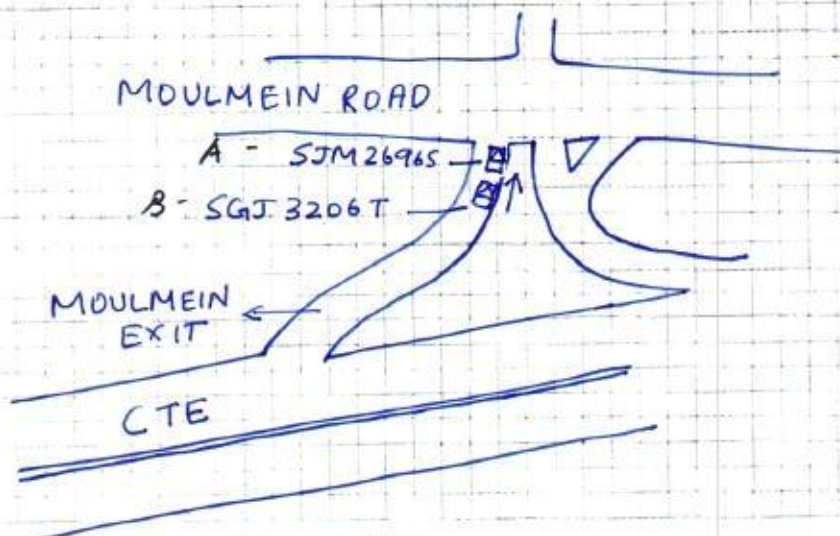 MOULMEIN ROAD
A - SJM2696S
B - SGJ 3206T
MOULMEIN
EXIT
CTE